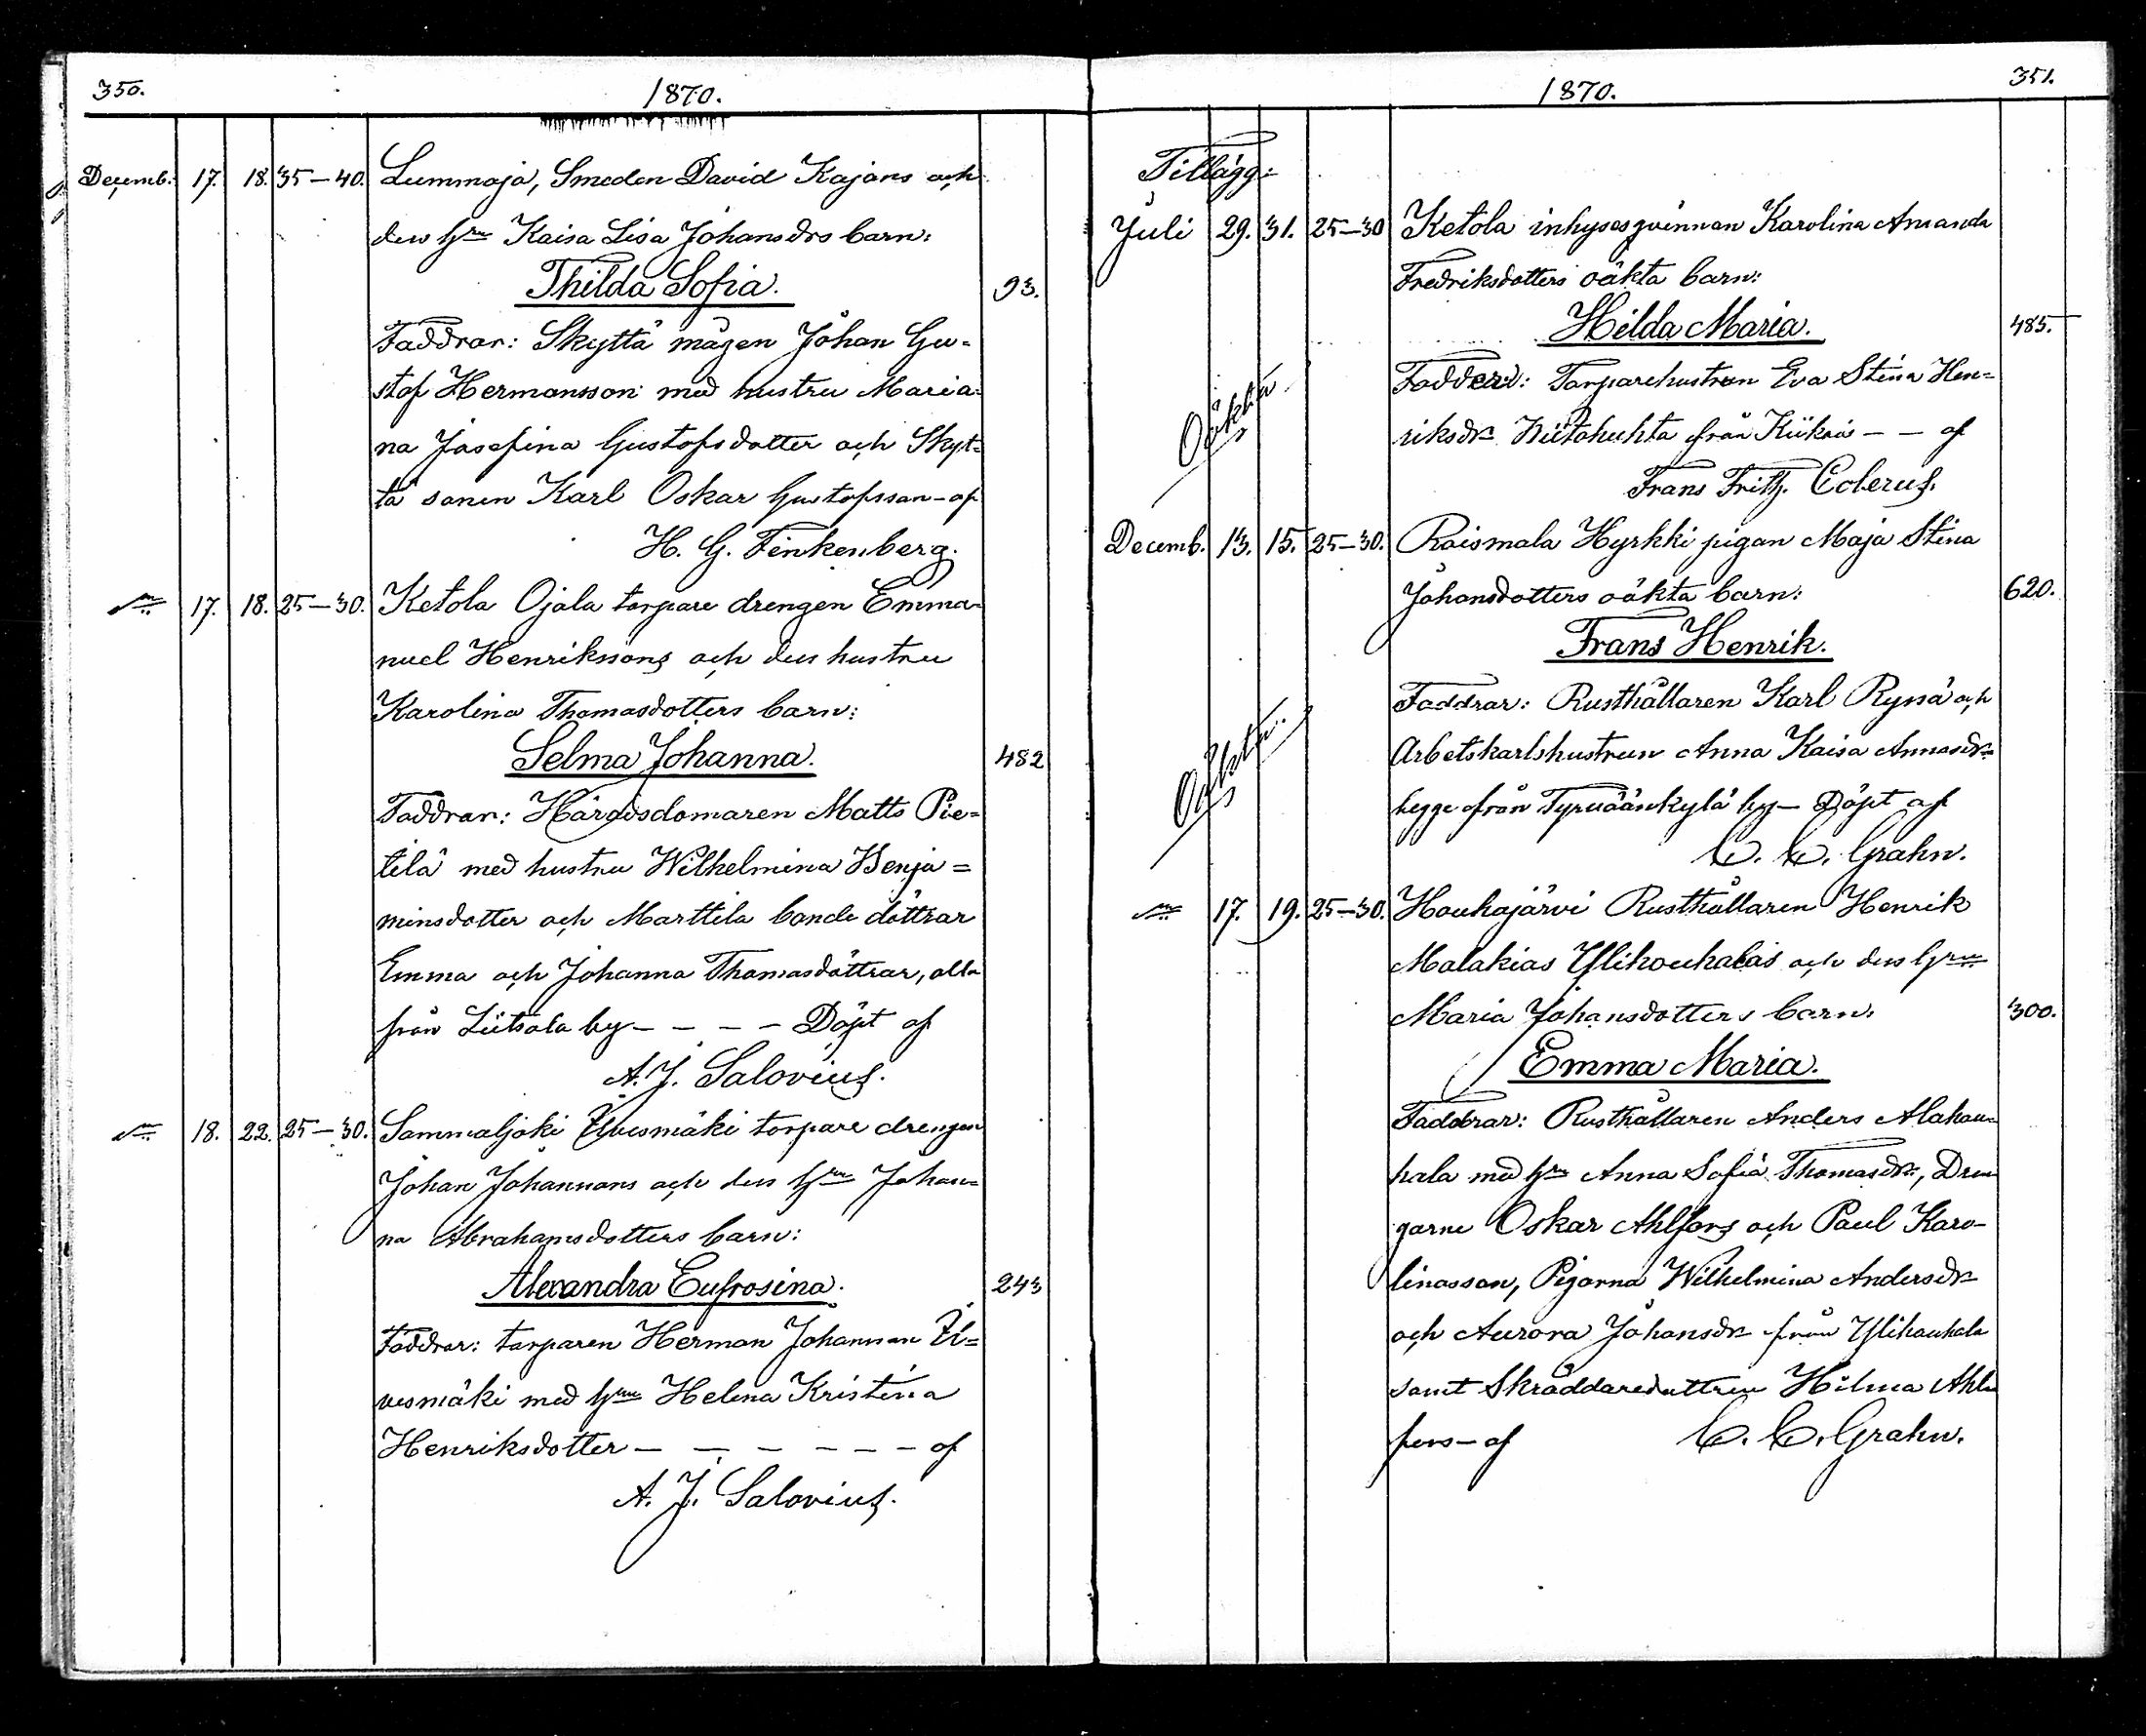 350.
1870.
Decemb. 17. 18. 35-40. Lummaja, Smeden David Kajans och
dess Hru Kaisa Lisa Johansdrs barn:
Thilda Sofia. 93.
Faddrar: Skyttä mågen Johan Gu-
staf Hermansson med hustru Maria-
na Josefina Gustafsdotter och Skyt-
tä sonen Karl Oskar Gustafsson - af
H. G. Finkenberg.
17. 18. 25-30. Ketola Ojala torpare drengen Emma-
nuel Henrikssons och dess hustru
Karolina Thomasdotters barn:
Selma Johanna. 482
Faddrar: Häradsdomaren Matts Pie=
tilä med hustru Wilhelmina Benja=
minsdotter och Marttila bonde döttrar
Emma och Johanna Thomasdöttrar, alla
från Liitsola by - - - - Döpt af
A. J. Salovius.
18. 22. 25-30. Sammaljoki Ilvesmäki torpare drengen
Johan Johannans och dess Hru Johan=
na Abrahamsdotters barn:
Alexandra Eufrosina. 243
Faddrar: torparen Herman Johannan Il=
vesmäki med Hru Helena Kristina
Henriksdotter - - - - - - af
A. J. Salovius.
1870.
351.
Tillägg:
Juli 29. 31. 25-30 Ketola inhysesqvinnan Karolina Amanda
Fredriksdotters oäkta barn:
Hilda Maria. 485.
Oäkta
Fadder: Torparehustrun Eva Stina Hen=
riksdr Niitohuhta från Kiikois - - af
Frans Fritj. Colerus.
Decemb. 13. 15. 25-30. Raismala Hyrkki pigan Maja Stina
Johansdotters oäkta barn: 620.
Frans Henrik.
Oäkta
Faddrar: Rusthållaren Karl Rysä och
Arbetskarlshustrun Anna Kaisa Annasdr
begge från Tyrväänkylä by - Döpt af
C. C. Grahn.
17. 19. 25-30. Houhajärvi Rusthållaren Henrik
Malakias Ylihouhalas och dess Hru
Maria Johansdotters barn. 300.
Emma Maria.
Faddrar: Rusthållaren Anders Alahou-
hala med Hru Anna Sofia Thomasdr, Dren-
garne Oskar Ahlfors och Paul Karo-
linasson, Pigorna Wilhelmina Andersdr
och Aurora Johansdr från Ylihouhala
samt Skräddaredottren Hilma Ahl-
fors - af C. C. Grahn.